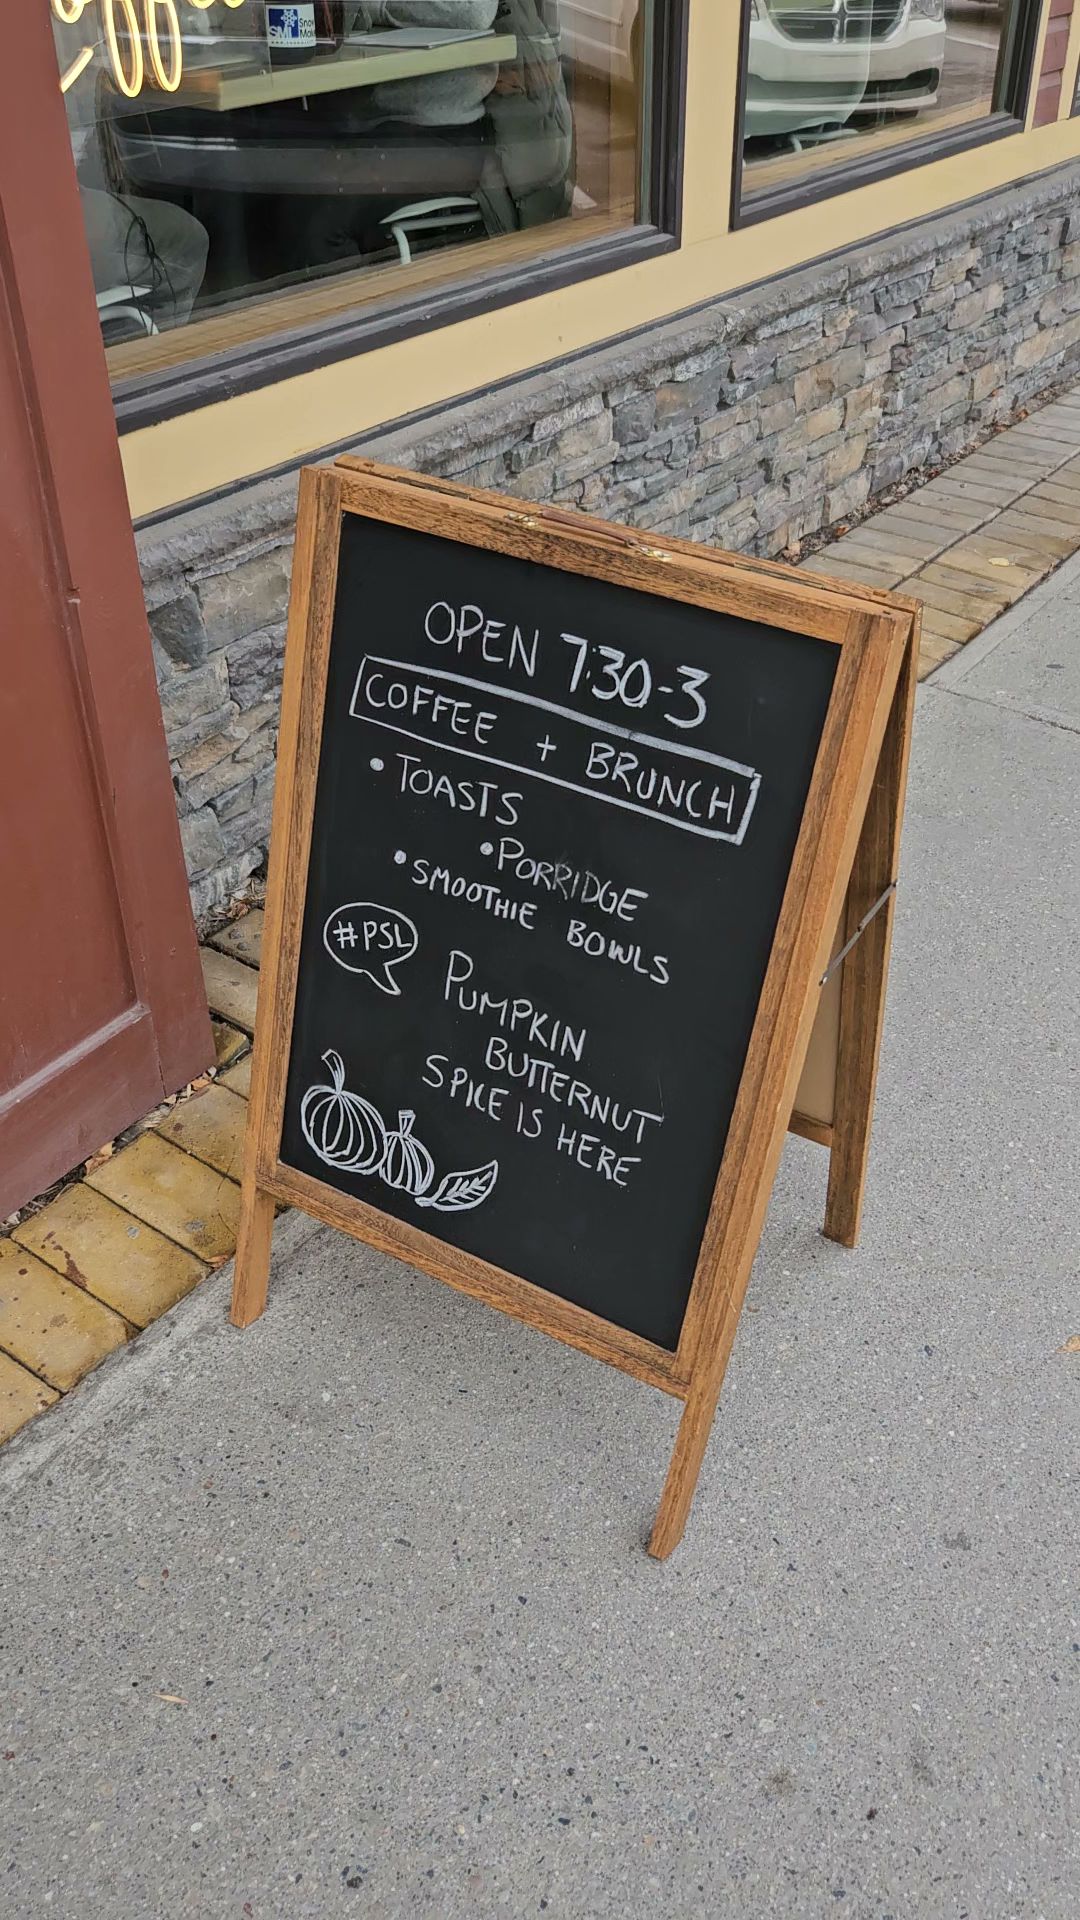 SMI Snow
OPEN 7:30-3
COFFEE + BRUNCH
• TOASTS
• PORRIDGE
• SMOOTHIE BOWLS
#PSL
PUMPKIN
BUTTERNUT
SPICE IS HERE